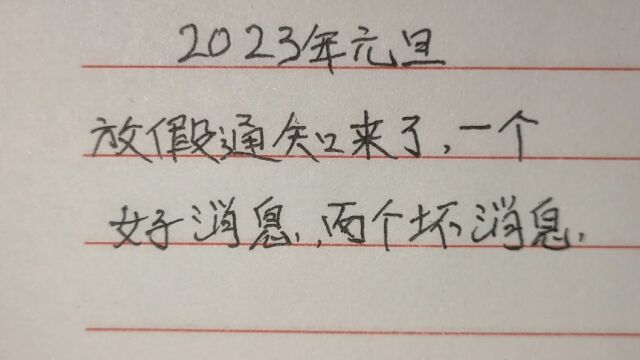 2023年元旦
放假通知来了,一个
好消息,两个坏消息,